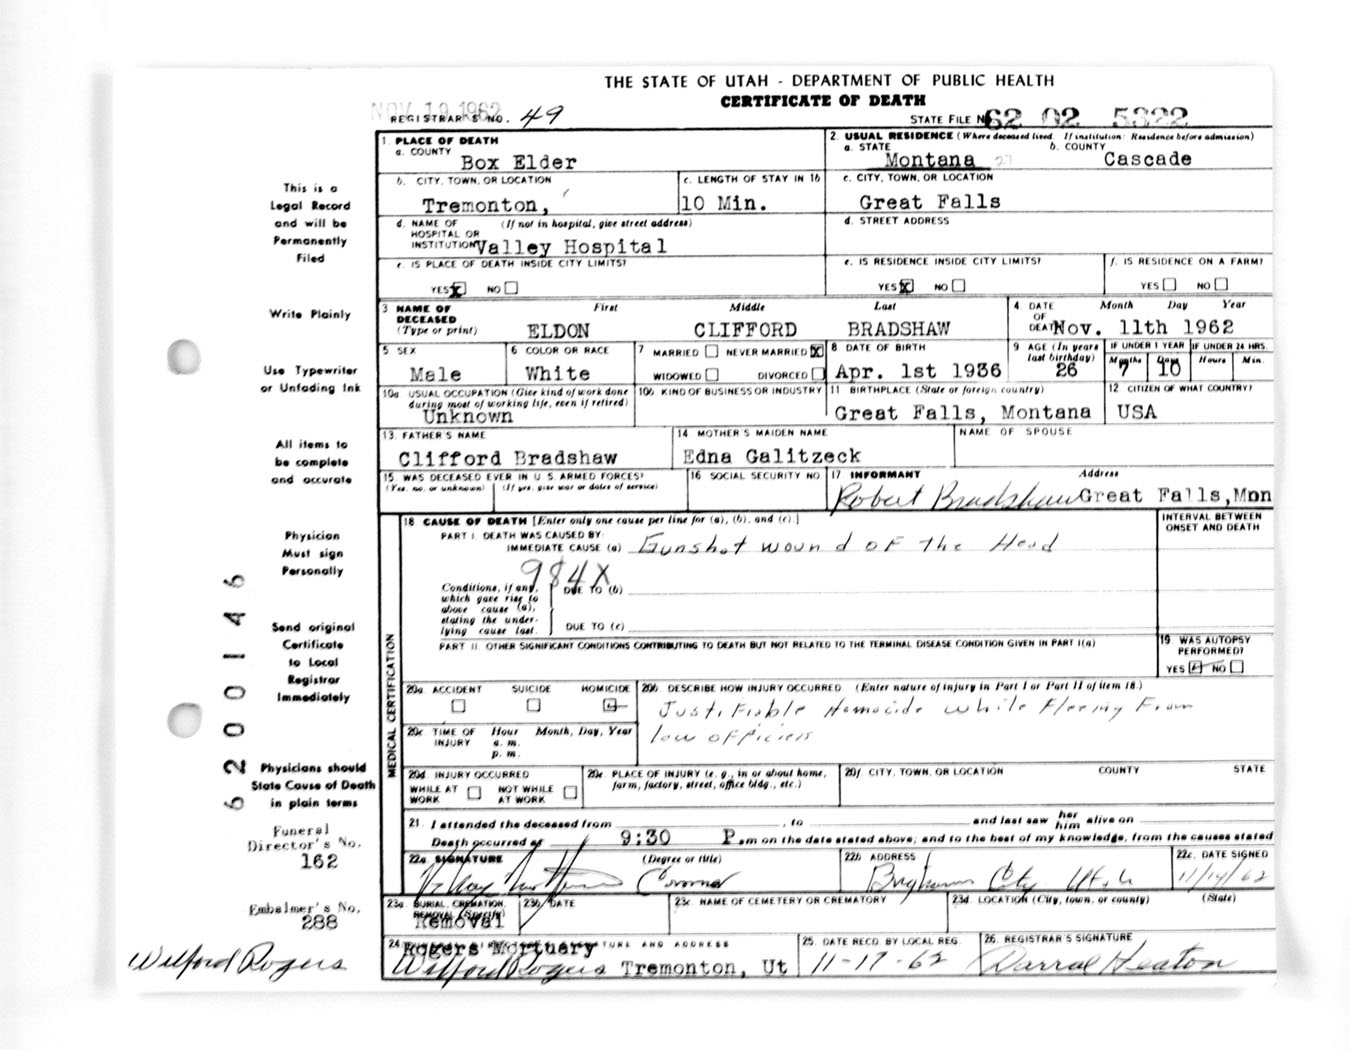 THE STATE OF UTAH - DEPARTMENT OF PUBLIC HEALTH
CERTIFICATE OF DEATH
NOV 19 1962
REGISTRAR'S NO. 49
STATE FILE NO. 62 02 5322
1. PLACE OF DEATH
a. COUNTY Box Elder
2. USUAL RESIDENCE (Where deceased lived. If institution: Residence before admission)
a. STATE Montana 27 b. COUNTY Cascade
b. CITY, TOWN, OR LOCATION Tremonton,
c. LENGTH OF STAY IN 1b 10 Min.
c. CITY, TOWN, OR LOCATION Great Falls
d. NAME OF HOSPITAL OR INSTITUTION (If not in hospital, give street address) Valley Hospital
d. STREET ADDRESS
e. IS PLACE OF DEATH INSIDE CITY LIMITS?
YES X NO
e. IS RESIDENCE INSIDE CITY LIMITS?
YES X NO
f. IS RESIDENCE ON A FARM?
YES NO
3 NAME OF DECEASED (Type or print)
First Middle Last
ELDON CLIFFORD BRADSHAW
4 DATE OF DEATH Month Day Year
Nov. 11th 1962
5 SEX Male
6 COLOR OR RACE White
7 MARRIED NEVER MARRIED X
WIDOWED DIVORCED
8 DATE OF BIRTH Apr. 1st 1936
9 AGE (In years last birthday) 26
IF UNDER 1 YEAR Months 7 Days 10
IF UNDER 24 HRS. Hours Min.
10a USUAL OCCUPATION (Give kind of work done during most of working life, even if retired) Unknown
10b KIND OF BUSINESS OR INDUSTRY
11 BIRTHPLACE (State or foreign country) Great Falls, Montana
12 CITIZEN OF WHAT COUNTRY? USA
13. FATHER'S NAME Clifford Bradshaw
14 MOTHER'S MAIDEN NAME Edna Galitzeck
NAME OF SPOUSE
15 WAS DECEASED EVER IN U.S. ARMED FORCES?
(Yes, no, or unknown) (If yes, give war or dates of service)
16 SOCIAL SECURITY NO
17 INFORMANT Address
Robert Bradshaw Great Falls, Mon
18 CAUSE OF DEATH [Enter only one cause per line for (a), (b), and (c).]
INTERVAL BETWEEN ONSET AND DEATH
PART I. DEATH WAS CAUSED BY:
IMMEDIATE CAUSE (a) Gunshot wound of the Head
984X
Conditions, if any, which gave rise to above cause (a), stating the underlying cause last.
DUE TO (b)
DUE TO (c)
PART II. OTHER SIGNIFICANT CONDITIONS CONTRIBUTING TO DEATH BUT NOT RELATED TO THE TERMINAL DISEASE CONDITION GIVEN IN PART I(a)
19. WAS AUTOPSY PERFORMED?
YES NO
MEDICAL CERTIFICATION
20a ACCIDENT SUICIDE HOMICIDE
20b DESCRIBE HOW INJURY OCCURRED (Enter nature of injury in Part I or Part II of item 18.)
Justifiable Homocide while Fleeing From
law officiers
20c TIME OF INJURY Hour Month, Day, Year
a. m.
p. m.
20d. INJURY OCCURRED
WHILE AT WORK NOT WHILE AT WORK
20e PLACE OF INJURY (e. g., in or about home, farm, factory, street, office bldg., etc.)
20f CITY, TOWN, OR LOCATION COUNTY STATE
21. I attended the deceased from , to and last saw her him alive on
Death occurred at 9:30 P. m on the date stated above; and to the best of my knowledge, from the causes stated
22a SIGNATURE (Degree or title)
Coroner
22b ADDRESS Brigham City Utah
22c. DATE SIGNED 11/14/62
23a BURIAL, CREMATION, REMOVAL (Specify) Removal
23b DATE
23c NAME OF CEMETERY OR CREMATORY
23d. LOCATION (City, town, or county) (State)
24. FUNERAL DIRECTOR'S SIGNATURE AND ADDRESS
Rogers Mortuary
Wilford Rogers Tremonton, Ut
25. DATE RECD. BY LOCAL REG. 11-17-62
26. REGISTRAR'S SIGNATURE Darral Heaton
This is a
Legal Record
and will be
Permanently
Filed
Write Plainly
Use Typewriter
or Unfading Ink
All items to
be complete
and accurate
Physician
Must sign
Personally
Send original
Certificate
to Local
Registrar
Immediately
Physicians should
State Cause of Death
in plain terms
6200146
Funeral
Director's No.
162
Embalmer's No.
288
Wilford Rogers